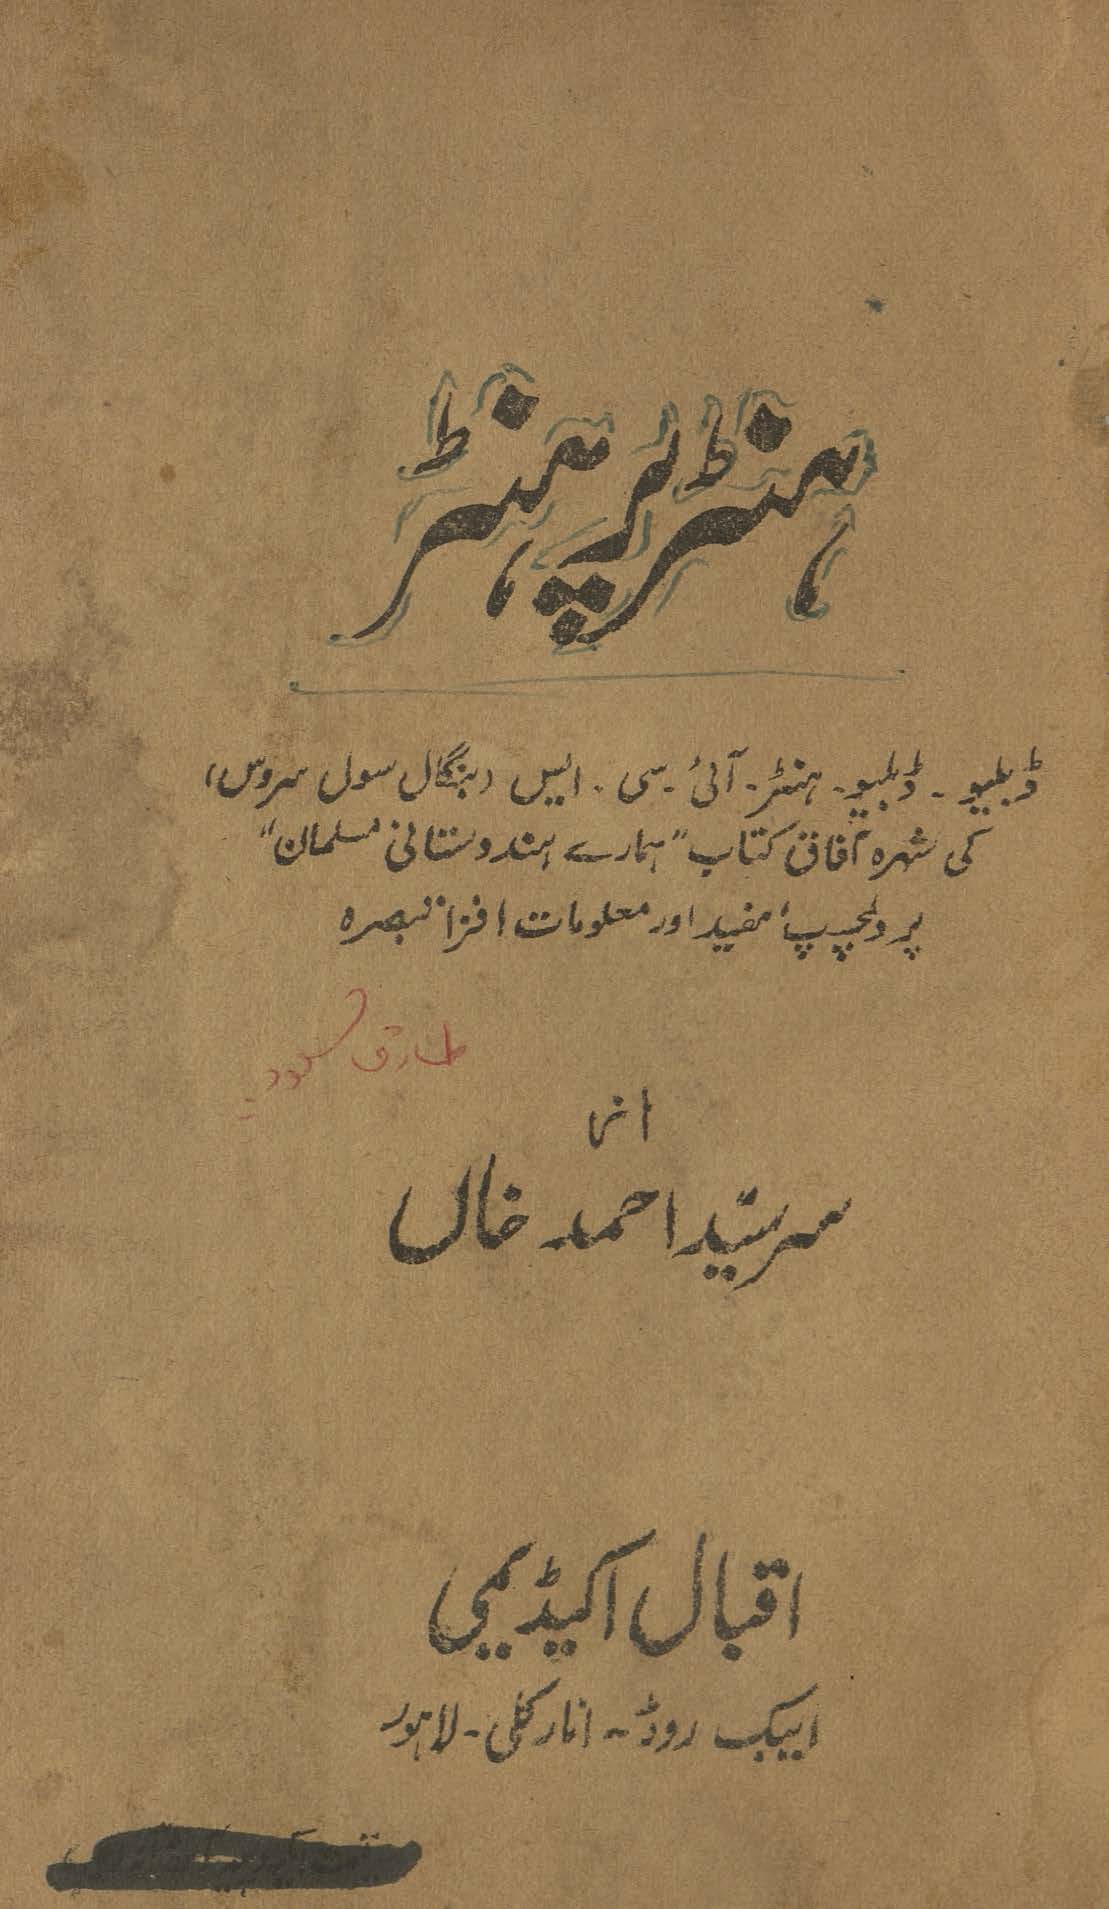 ہنٹر پر ہنٹر
ڈبلیو۔ ڈبلیو۔ ہنٹر۔ آئی۔ سی۔ ایس (بنگال سول سروس)
کی شہرہ آفاق کتاب "ہمارے ہندوستانی مسلمان"
پر دلچسپ، مفید اور معلومات افزا تبصرہ
طارق مسعود
از
سر سیّد احمد خاں
اقبال اکیڈیمی
ایبک روڈ۔ انارکلی۔ لاہور